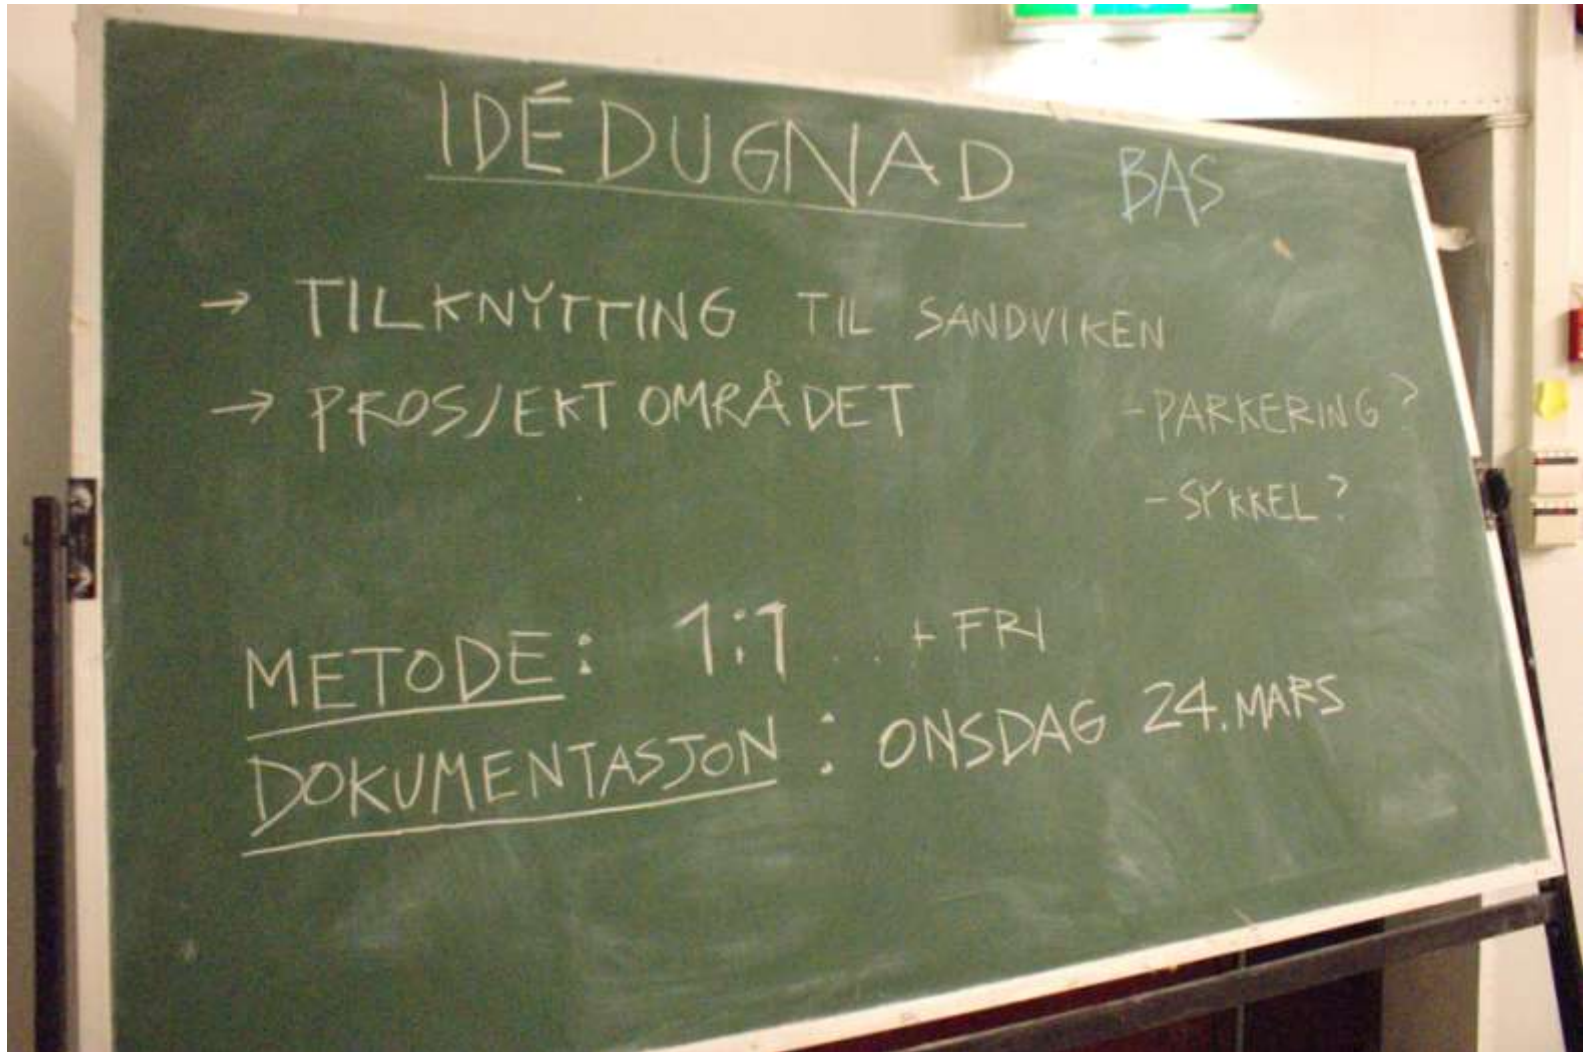 IDÉDUGNAD BAS
→ TILKNYTTING TIL SANDVIKEN
→ PROSJEKTOMRÅDET - PARKERING?
- SYKKEL?
METODE: 1:1 .. + FRI
DOKUMENTASJON: ONSDAG 24. MARS